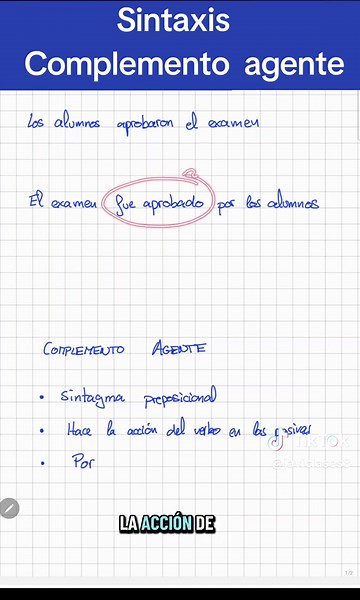 Sintaxis
Complemento agente
Los alumnos aprobaron el examen
El examen fue aprobado por los alumnos
COMPLEMENTO AGENTE
• Sintagma preposicional
• Hace la acción del verbo en las pasivas
• Por
TikTok
LA ACCIÓN DE
1/2